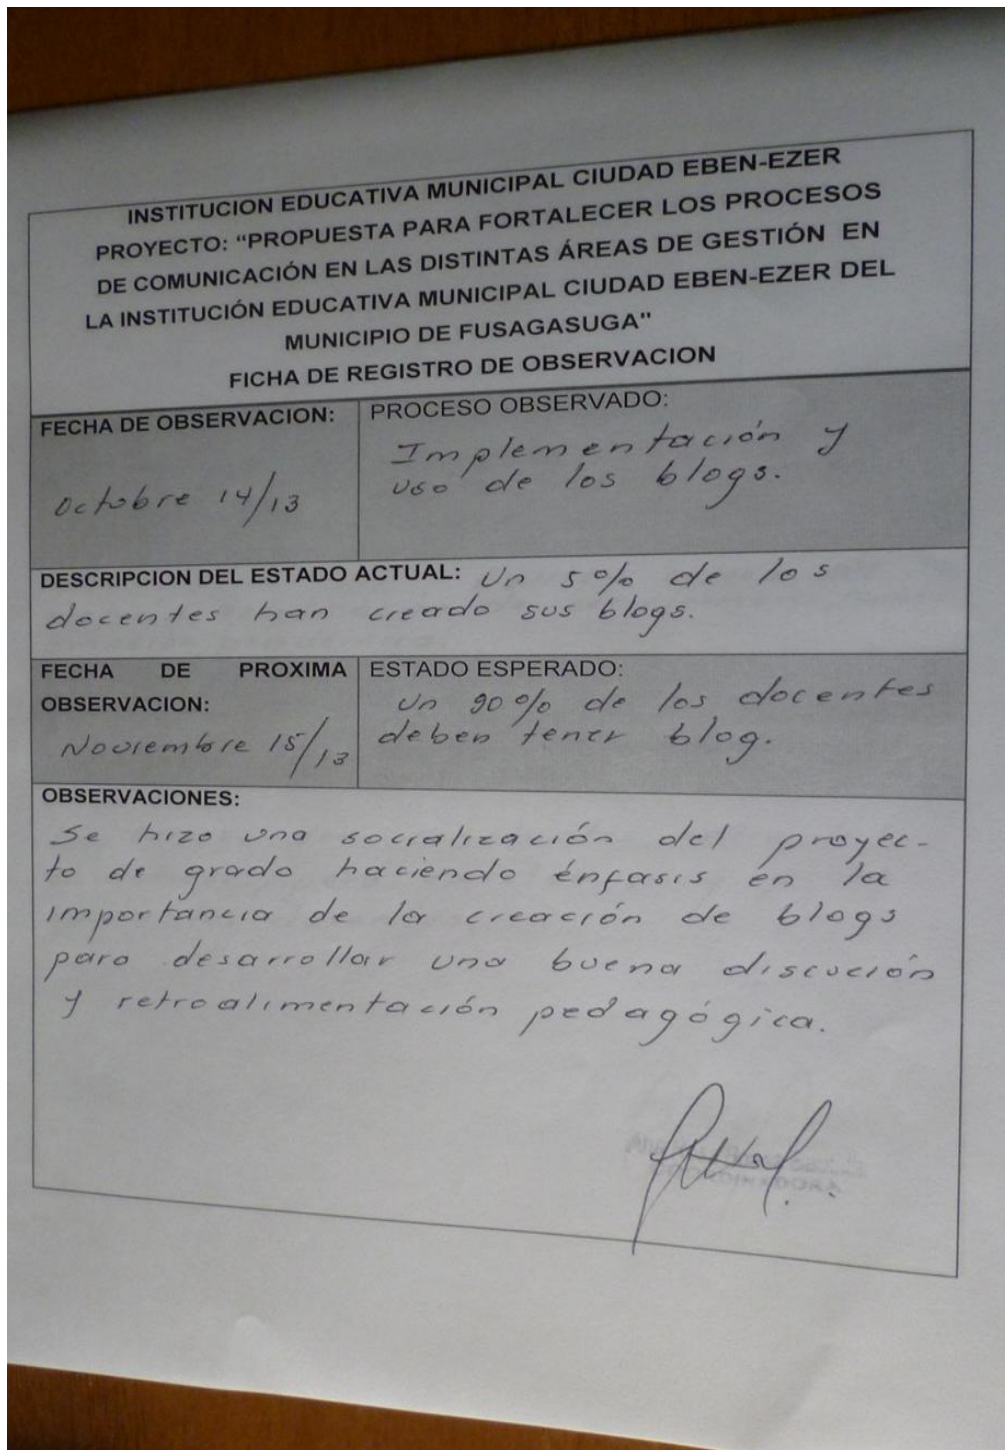 INSTITUCION EDUCATIVA MUNICIPAL CIUDAD EBEN-EZER
PROYECTO: “PROPUESTA PARA FORTALECER LOS PROCESOS
DE COMUNICACIÓN EN LAS DISTINTAS ÁREAS DE GESTIÓN EN
LA INSTITUCIÓN EDUCATIVA MUNICIPAL CIUDAD EBEN-EZER DEL
MUNICIPIO DE FUSAGASUGA"
FICHA DE REGISTRO DE OBSERVACION
FECHA DE OBSERVACION:
Octobre 14/13
PROCESO OBSERVADO:
Implementación y
uso de los blogs.
DESCRIPCION DEL ESTADO ACTUAL: Un 5% de los
docentes han creado sus blogs.
FECHA DE PROXIMA
OBSERVACION:
Noviembre 15/13
ESTADO ESPERADO:
Un 90% de los docentes
deben tener blog.
OBSERVACIONES:
Se hizo una socialización del proyec-
to de grado haciendo énfasis en la
importancia de la creación de blogs
para desarrollar una buena discución
y retroalimentación pedagógica.